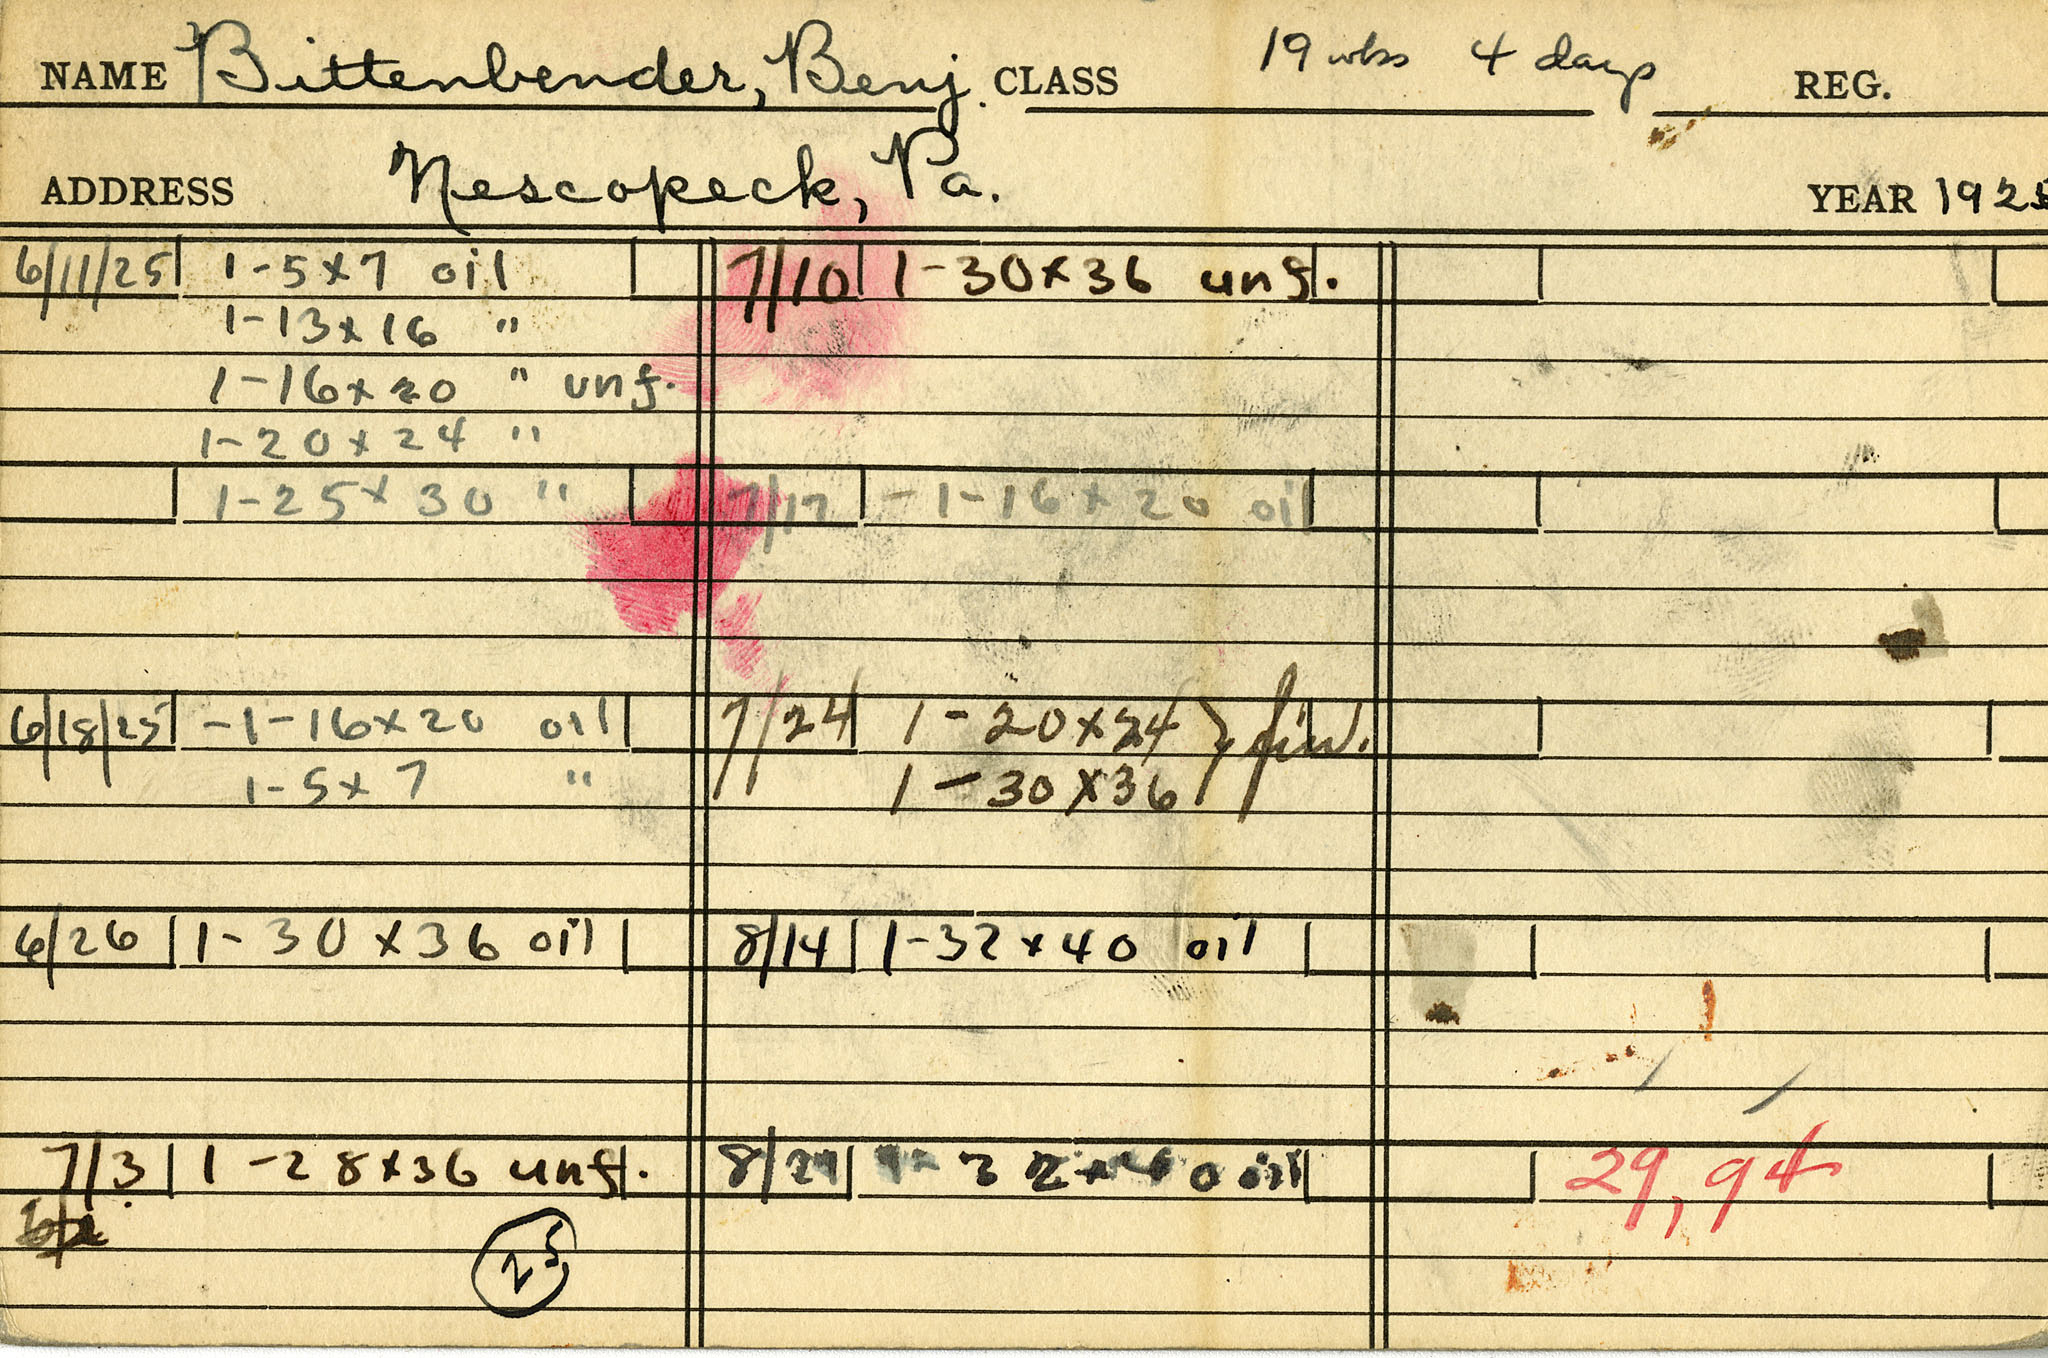 NAME Bittenbender, Benj. CLASS 19 wks 4 days REG.
ADDRESS Nescopeck, Pa. YEAR 1925
6/11/25 1-5x7 oil
1-13x16 "
1-16x20 " unf.
1-20x24 "
1-25x30 "
6/18/25 -1-16x20 oil
1-5x7 "
6/26 1-30x36 oil
7/3 1-28x36 unf.
25
7/10 1-30x36 unf.
7/17 -1-16x20 oil
7/24 1-20x24 } fin.
1-30x36
8/14 1-32x40 oil
8/29 1-32x40 oil
29,94